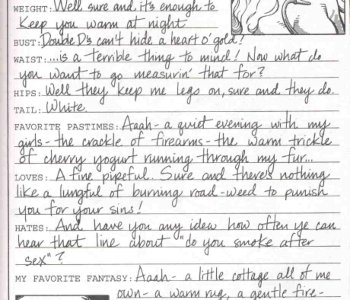 WEIGHT: Well sure and it's enough to
Keep you warm at night
BUST: Double D's can't hide a heart o' gold!
WAIST: ...is a terrible thing to mind! Now what do
you want to go measurin' that for?
HIPS: Well they keep me legs on, sure and they do.
TAIL: White.
FAVORITE PASTIMES: Aaah- a quiet evening with my
girls- the crackle of firearms- the warm trickle
of cherry yogurt running through my fur...
LOVES: A fine pipeful. Sure and there's nothing
like a lungful of burning road-weed to punish
you for your sins!
HATES: And have you any idea how often ye can
hear that line about "do you smoke after
sex"?
MY FAVORITE FANTASY: Aaah- a little cottage all of me
own- a warm rug, a gentle fire-